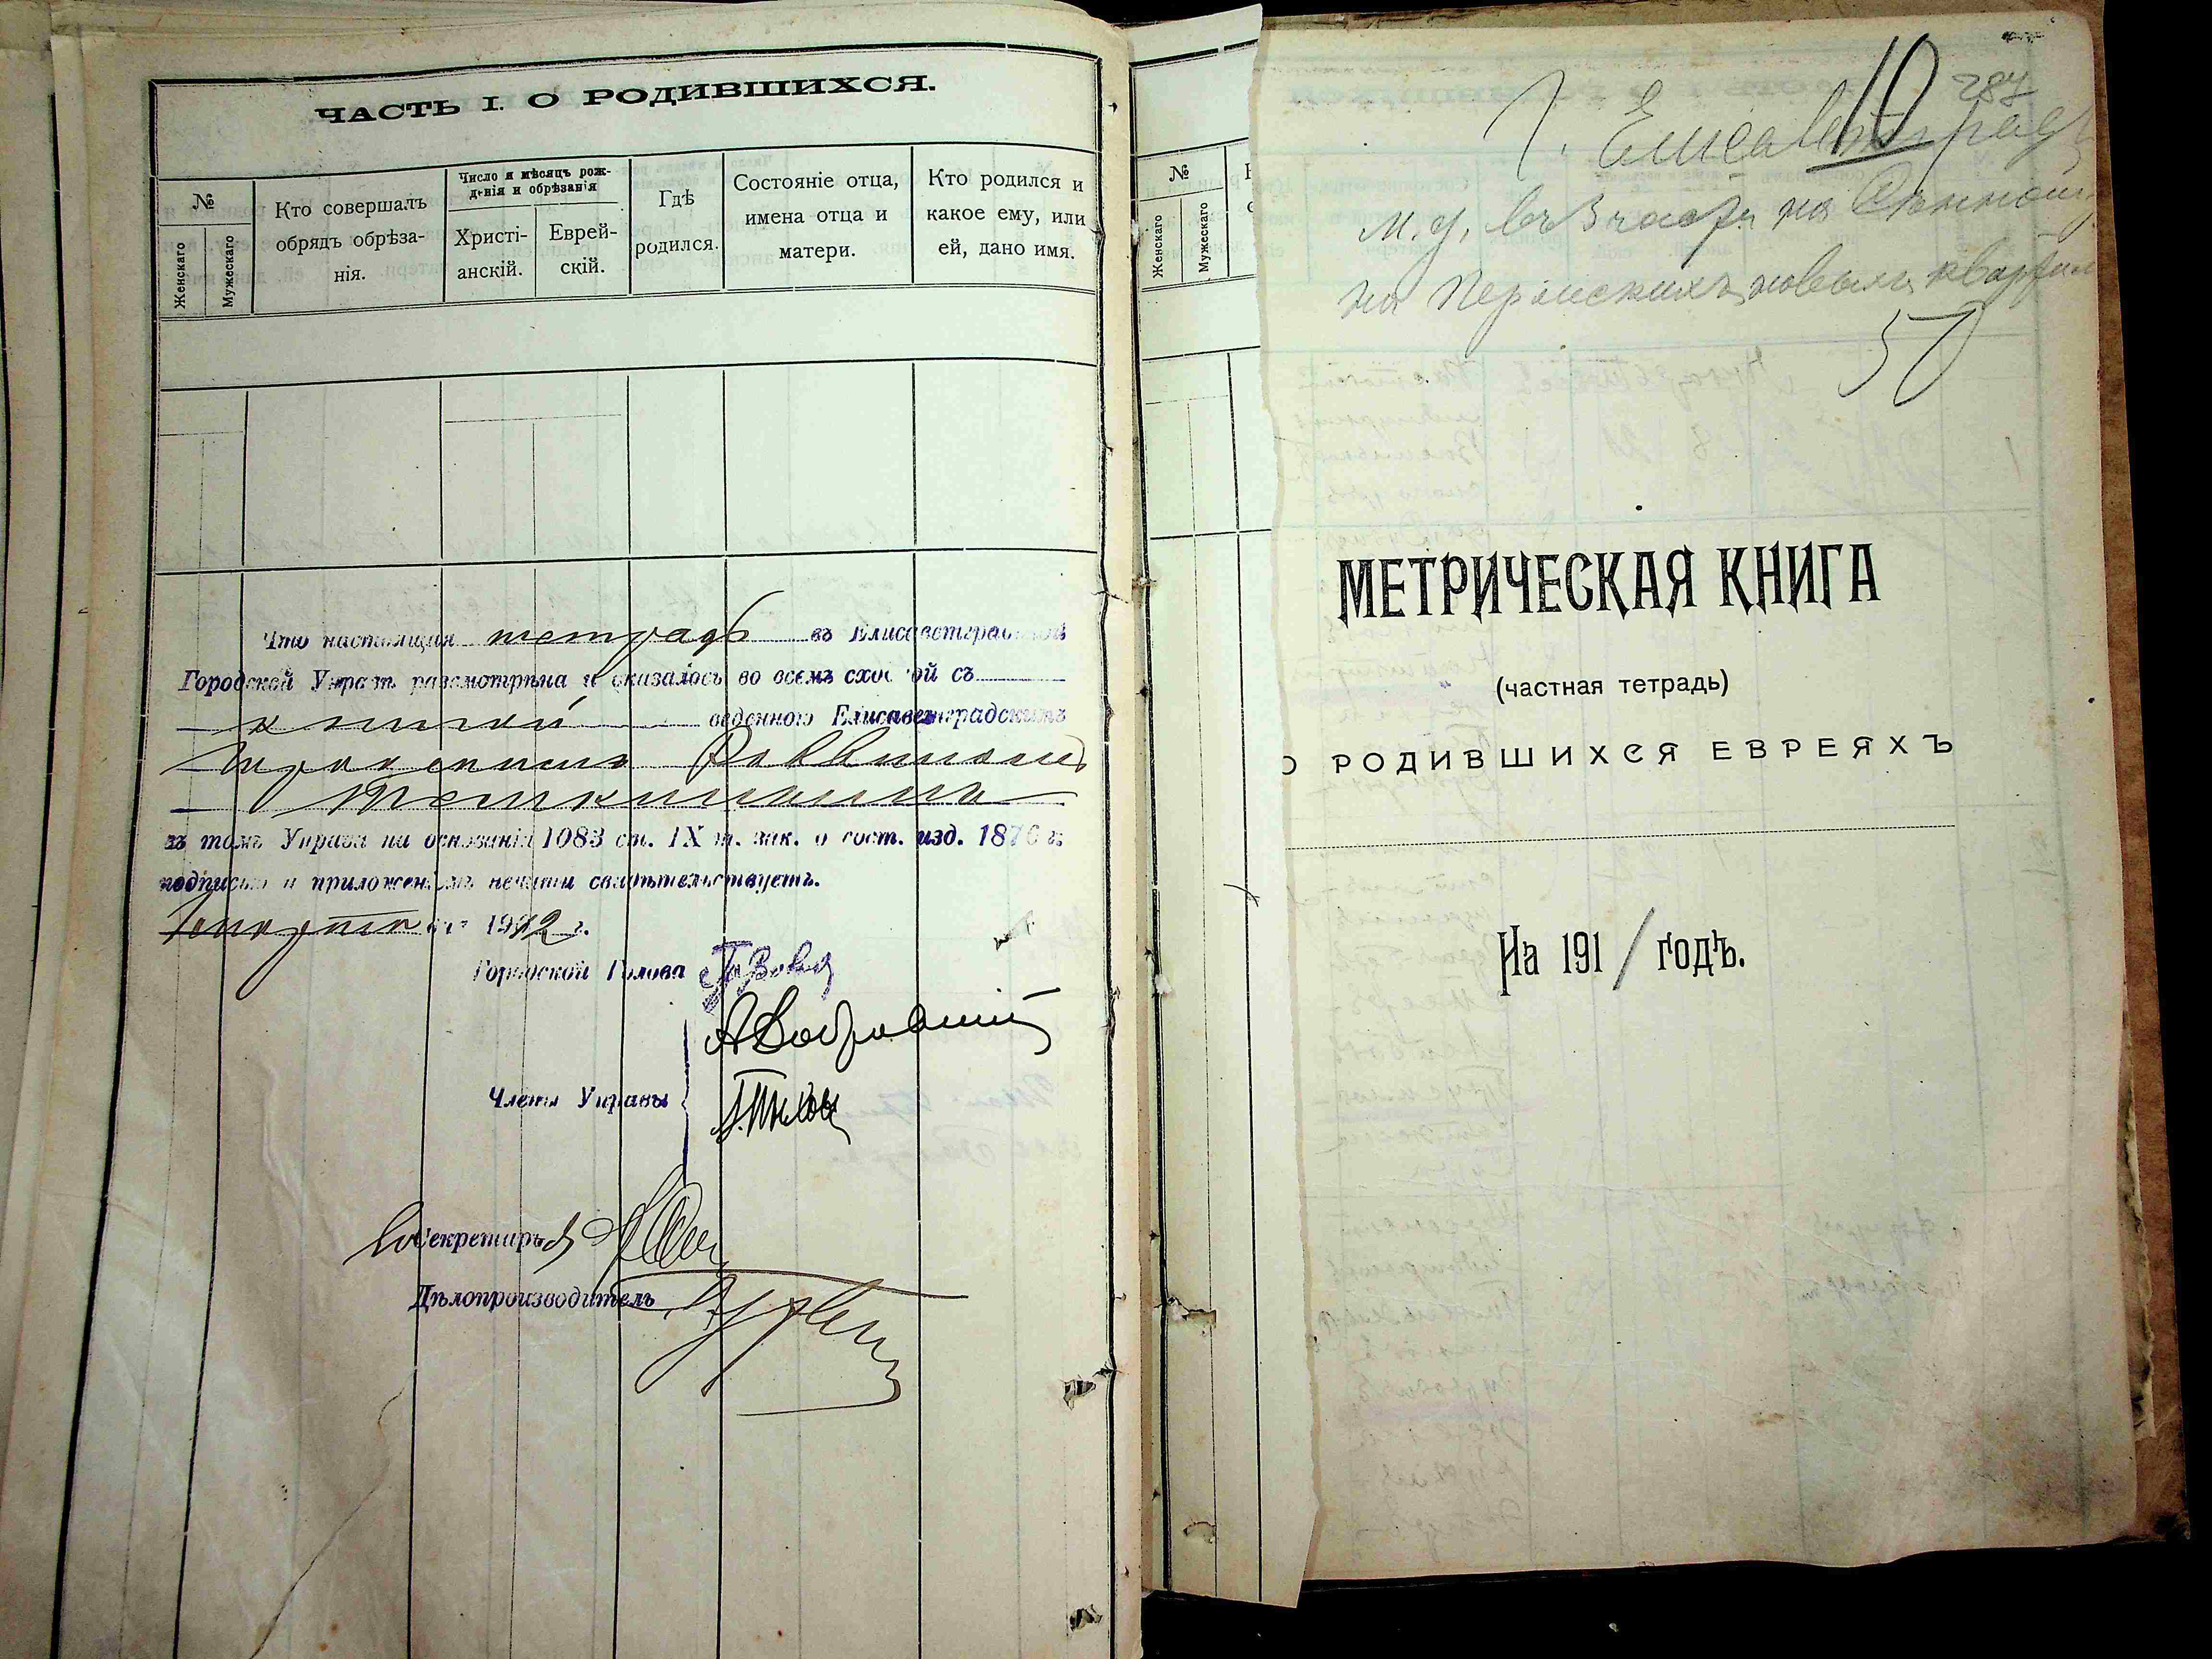 ЧАСТЬ I. О РОДИВШИХСЯ.
№
Женскаго
Мужескаго
Кто совершалъ
обрядъ обрѣза-
нія.
Число и мѣсяцъ рож-
денія и обрѣзанія
Христі-
анскій.
Еврей-
скій.
Гдѣ
родился.
Состояніе отца,
имена отца и
матери.
Кто родился и
какое ему, или
ей, дано имя.
Что настоящая тетрадь въ Елисаветградской
Городской Управѣ разсмотрѣна и оказалось во всемъ сходной съ
книгой веденною Елисаветградскимъ
Раввиномъ
въ томъ Управа на основаніи 1083 ст. IX т. зак. о сост. изд. 1876 г.
подписью и приложеніемъ печати свидѣтельствуетъ.
1912 г.
Городской Голова
Члены Управы
Секретарь
Дѣлопроизводитель
№
Женскаго
Мужескаго
10
287
Г. Елисаветград
м. у. въ 3 части на Сѣнной
на новыхъ
50
МЕТРИЧЕСКАЯ КНИГА
(частная тетрадь)
О РОДИВШИХСЯ ЕВРЕЯХЪ
На 1911 годъ.